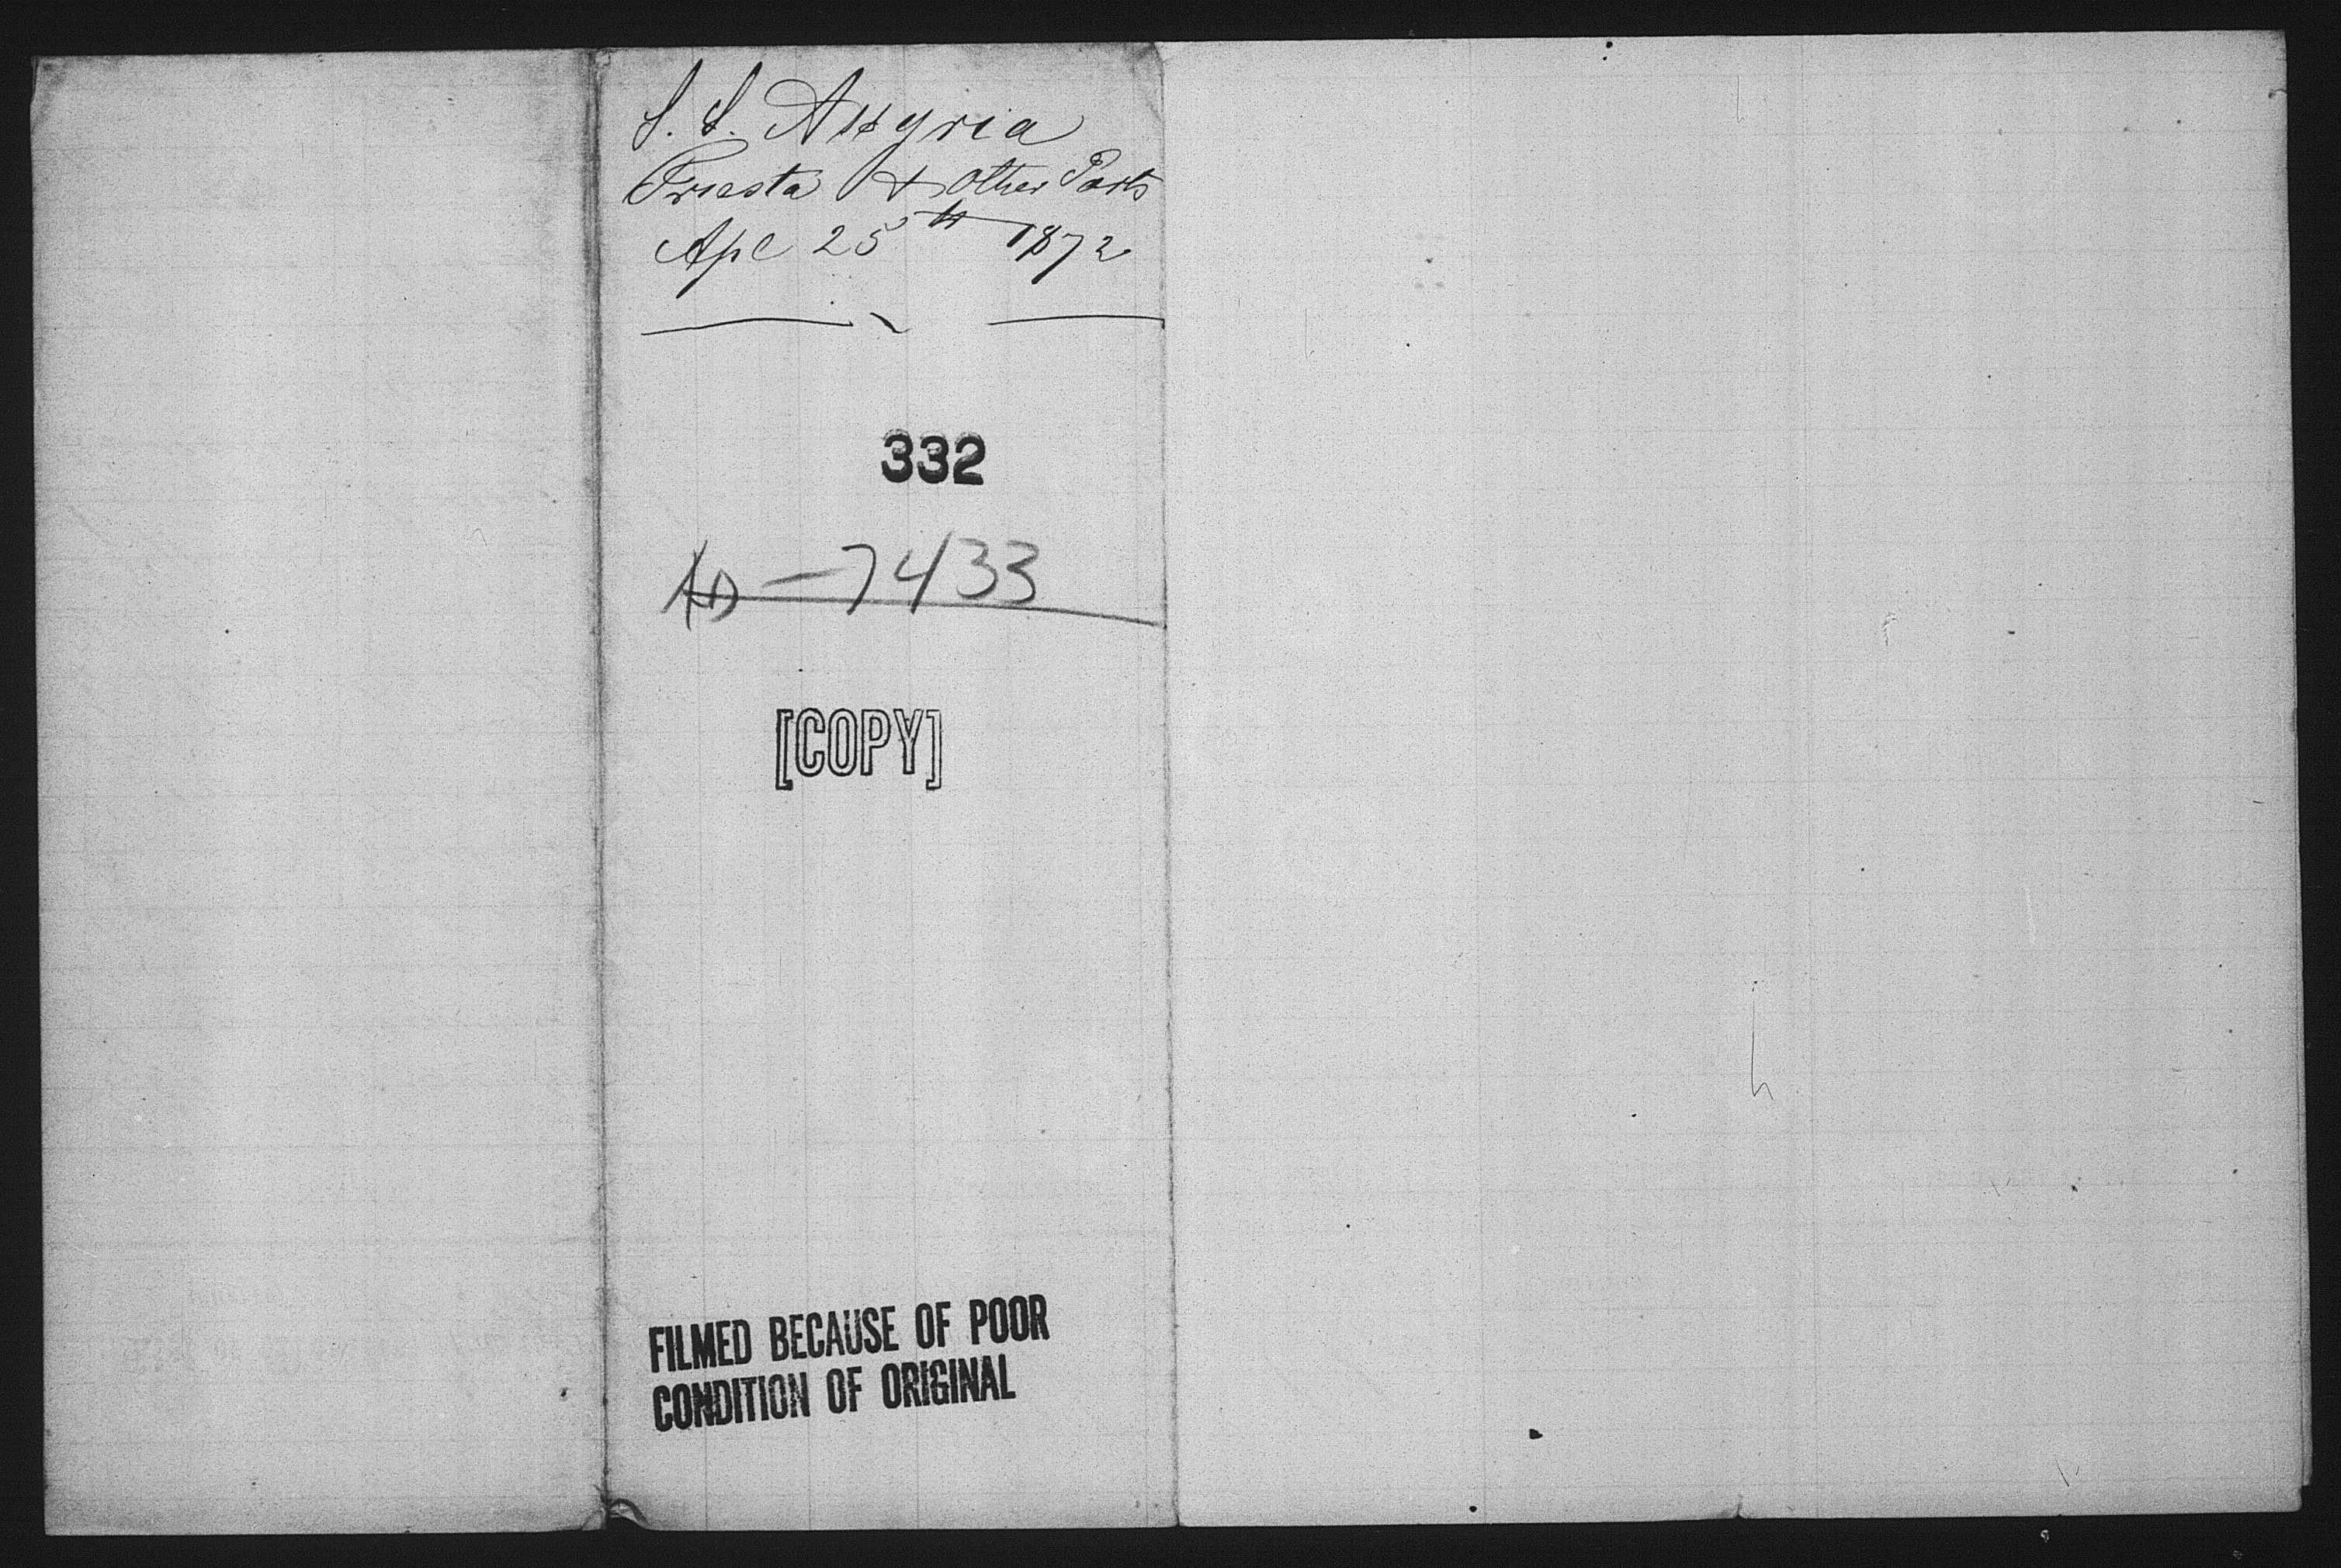 S. S. Assyria
Triesta & other Ports
Apl 25th 1872
332
7433
[COPY]
FILMED BECAUSE OF POOR
CONDITION OF ORIGINAL